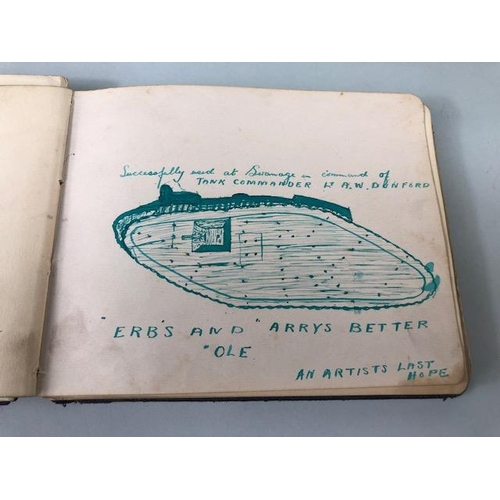 Successfully used at Swanage in command of
TANK COMMANDER Lt A.W. DUNFORD
"ERB'S AND "ARRYS BETTER
"OLE
AN ARTISTS LAST
HOPE